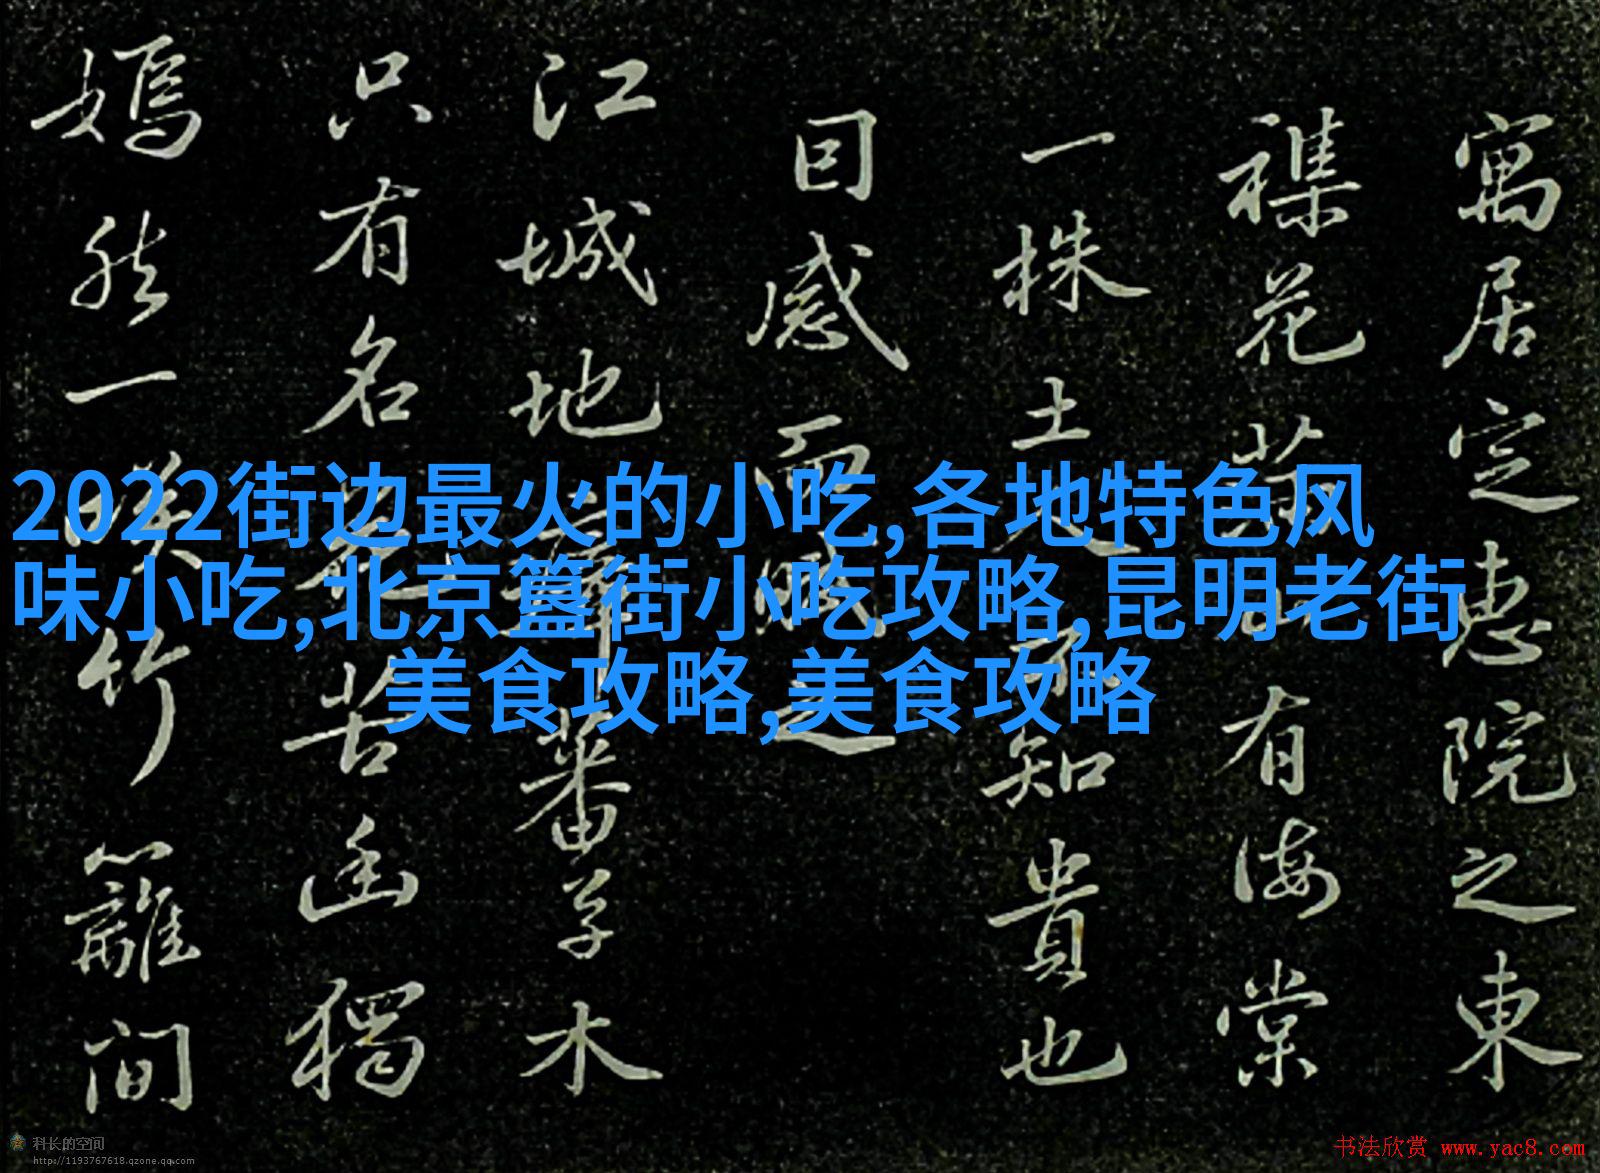 寓居定惠院之東
襍花滿山有海棠
一株土人不知貴也
囙感而賦之
江城地瘴蕃草木
只有名花苦幽獨
嫣然一笑竹籬間
2022街边最火的小吃,各地特色风
味小吃,北京簋街小吃攻略,昆明老街
美食攻略,美食攻略
科长的空间
http://1193767618.qzone.qq.com
书法欣赏 www.yac8.com